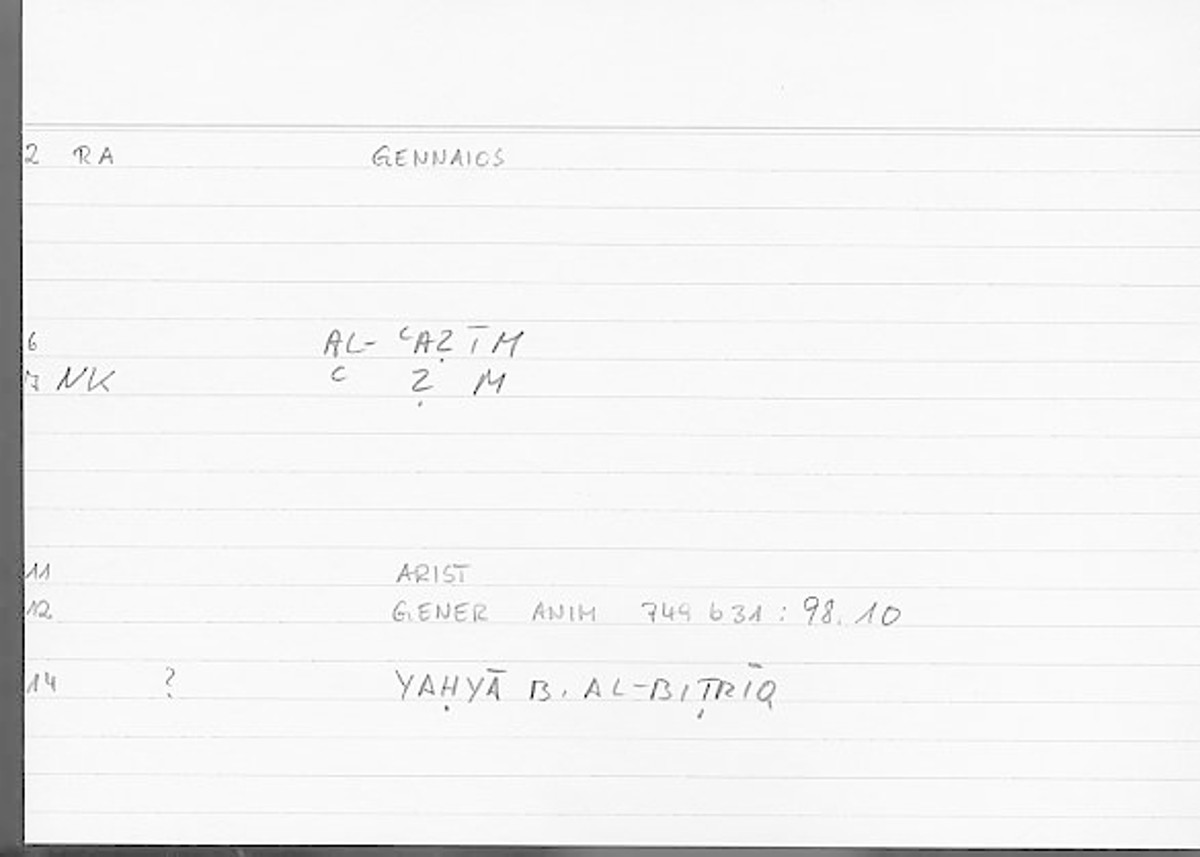 2 RA GENNAIOS
6 AL- ʿAẒĪM
7 NK ʿ Ẓ M
11 ARIST
12 GENER ANIM 749 b 31 : 98.10
14 ? YAḤYĀ B. AL-BIṬRĪQ